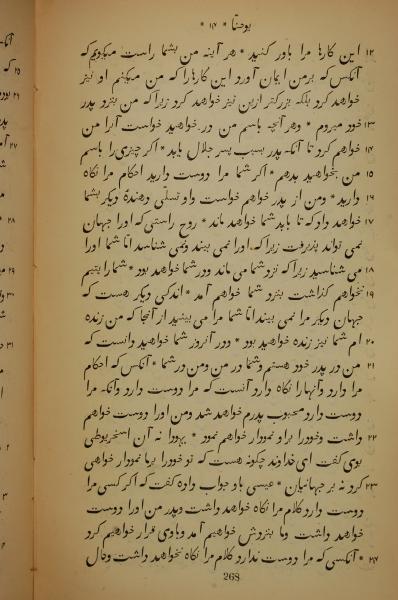 یوحنّا * ۱۴ *
۱۲ این کارها مرا باور کنید * هر آینه من بشما راست میگویم که
آنکس که بر من ایمان آورد این کارها را که من میکنم او نیز
خواهد کرد بلکه بزرگتر ازین نیز خواهد کرد زیرا که من بنزد پدر
۱۳ خود میروم * وهر آنچه باسم من در خواهید خواست آنرا من
۱۴ خواهم کرد تا آنکه پدر بسبب پسر جلال یابد * اگر چیزی را باسم
۱۵ من بخواهید بدهم * اگر شما مرا دوست دارید احکام مرا نگاه
۱۶ دارید * ومن از پدر خواهم خواست واو تسلّی دهندهٔ دیگر بشما
۱۷ خواهد داد که تا باید شما خواهد ماند * روح راستی که اورا جهان
نمی تواند پذیرفت زیرا که اورا نمی بیند ونمی شناسد امّا شما اورا
۱۸ می شناسید زیرا که نزد شما می ماند ودر شما خواهد بود * شما را یتیم
۱۹ نخواهم گذاشت بنزد شما خواهم آمد * اندکی دیگر هست که
جهان دیگر مرا نمی بیند امّا شما مرا می بینید از آنجا که من زنده
۲۰ ام شما نیز زنده خواهید بود * ودر آنروز شما خواهید دانست که
۲۱ من در پدر خود هستم وشما در من ومن در شما * آنکس که احکام
مرا دارد وآنها را نگاه دارد آنست که مرا دوست دارد وآنکه مرا
دوست دارد محبوب پدرم خواهد شد ومن اورا دوست خواهم
۲۲ داشت وخود را براو نمودار خواهم نمود * یهودا نه آن اسخریوطی
بوی گفت ای خداوند چگونه هست که تو خود را برما نمودار خواهی
۲۳ کرد نه بر جهانیان * عیسی باو جواب داده گفت که اگر کسی مرا
دوست دارد کلام مرا نگاه خواهد داشت وپدر من اورا دوست
خواهد داشت وما بنزدش خواهیم آمد وباوی قرار خواهیم کرد
۲۴ * آنکسی که مرا دوست ندارد کلام مرا نگاه نخواهد داشت وحال
268